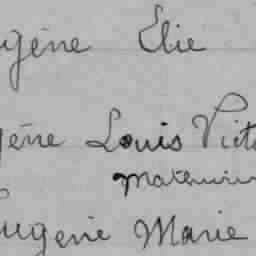 gène Elie
gène Louis Vict
Mathurin
Eugène Marie